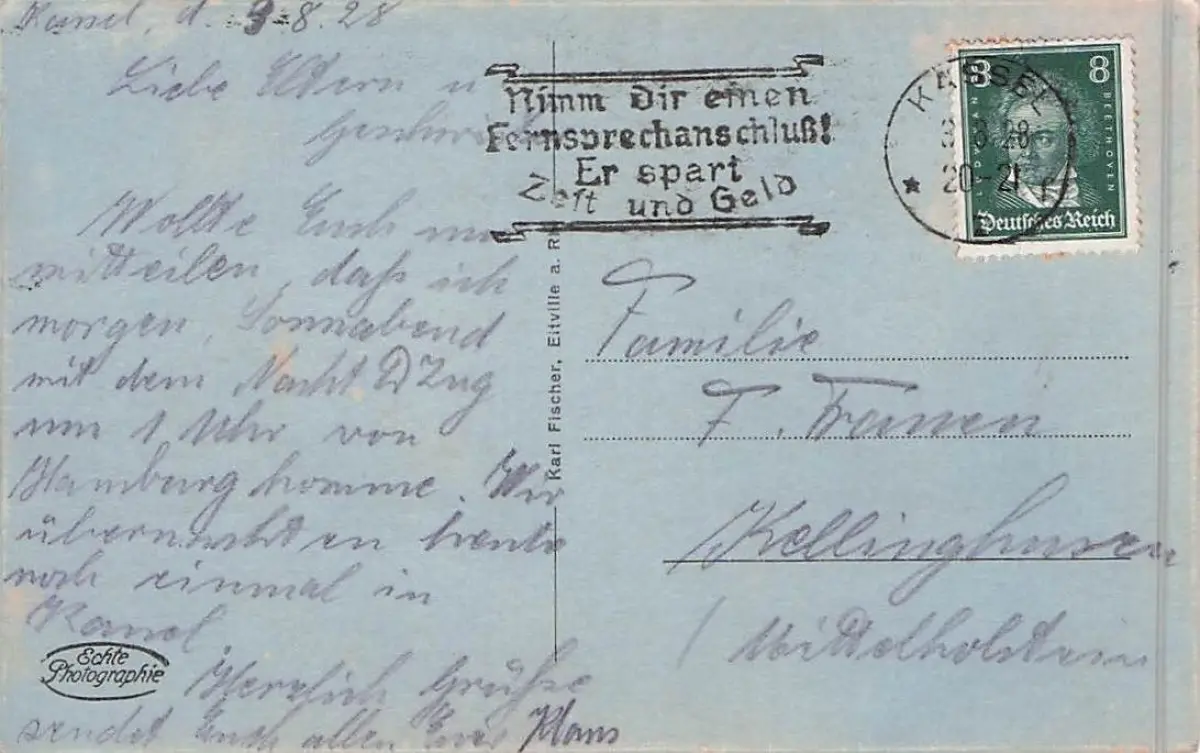 Kassel, d. 3.8.28
Liebe Eltern u
Geschw
Wollte Euch nur
mitteilen, daß ich
morgen, Sonnabend
mit dem Nacht D Zug
um 1 Uhr von
Hamburg komme. Wir
übernachten heute
noch einmal in
Kassel.
Herzlich Grüße
sendet Euch allen Euer Hans
Echte
Photographie
Karl Fischer, Eltville a. Rh
Nimm Dir einen
Fernsprechanschluß!
Er spart
Zeit und Geld
KASSEL
3.8.28
20-21
8 8
LUDWIG VAN BEETHOVEN
Deutsches Reich
Familie
F.
Kellinghusen
/ Mittelholstein